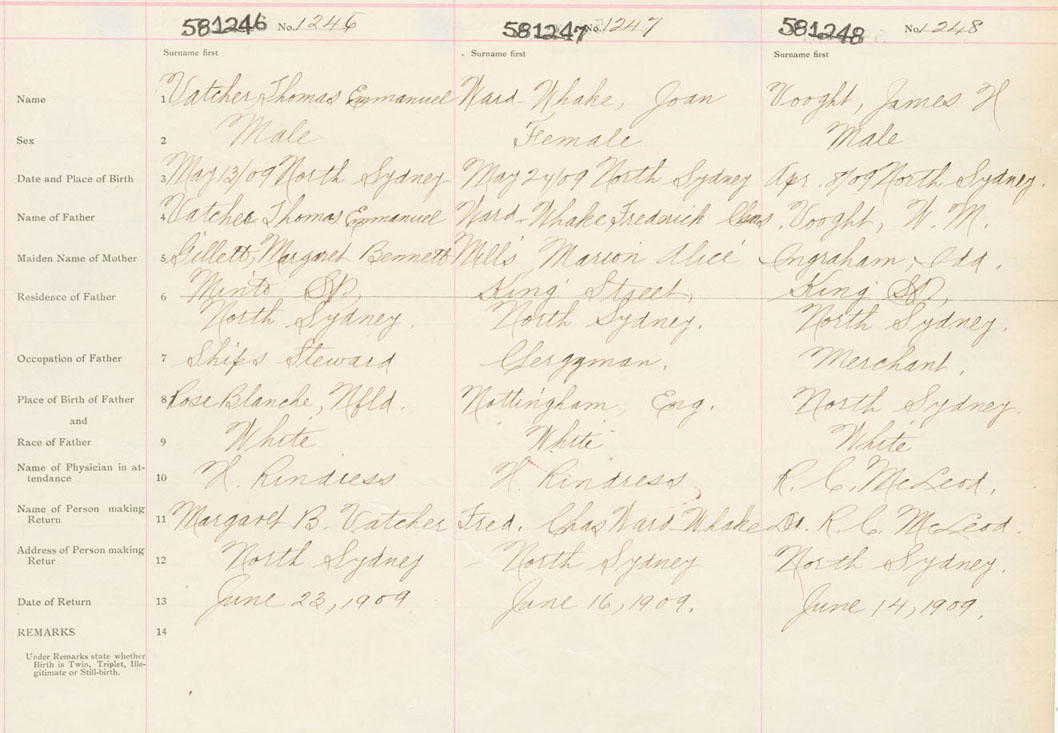 581246 No. 1246 581247 No. 1247 581248 No. 1248
Surname first Surname first Surname first
Name 1 Vatcher, Thomas Emmanuel Ward-Whake, Joan Vooght, James H
Sex 2 Male Female Male
Date and Place of Birth 3 May 13/09 North Sydney May 24/09 North Sydney Apr. 8/09 North Sydney.
Name of Father 4 Vatcher Thomas Emmanuel Ward-Whake Frederick Chas. Vooght, W. M.
Maiden Name of Mother 5 Gillett, Margaret Bennett Mills Marion Alice Ingraham, Ida.
Residence of Father 6 Minto St, King Street, King St,
North Sydney. North Sydney. North Sydney.
Occupation of Father 7 Ships Steward Clergyman. Merchant.
Place of Birth of Father 8 Rose Blanche, Nfld. Nottingham, Eng. North Sydney.
and
Race of Father 9 White White White
Name of Physician in at-
tendance 10 H. Rindress H. Rindress R. C. McLeod.
Name of Person making
Return 11 Margaret B. Vatcher Fred. Chas Ward Whake Dr. R. C. McLeod.
Address of Person making
Retur 12 North Sydney North Sydney North Sydney.
Date of Return 13 June 23, 1909. June 16, 1909. June 14, 1909.
REMARKS 14
Under Remarks state whether
Birth is Twin, Triplet, Ille-
gitimate or Still-birth.